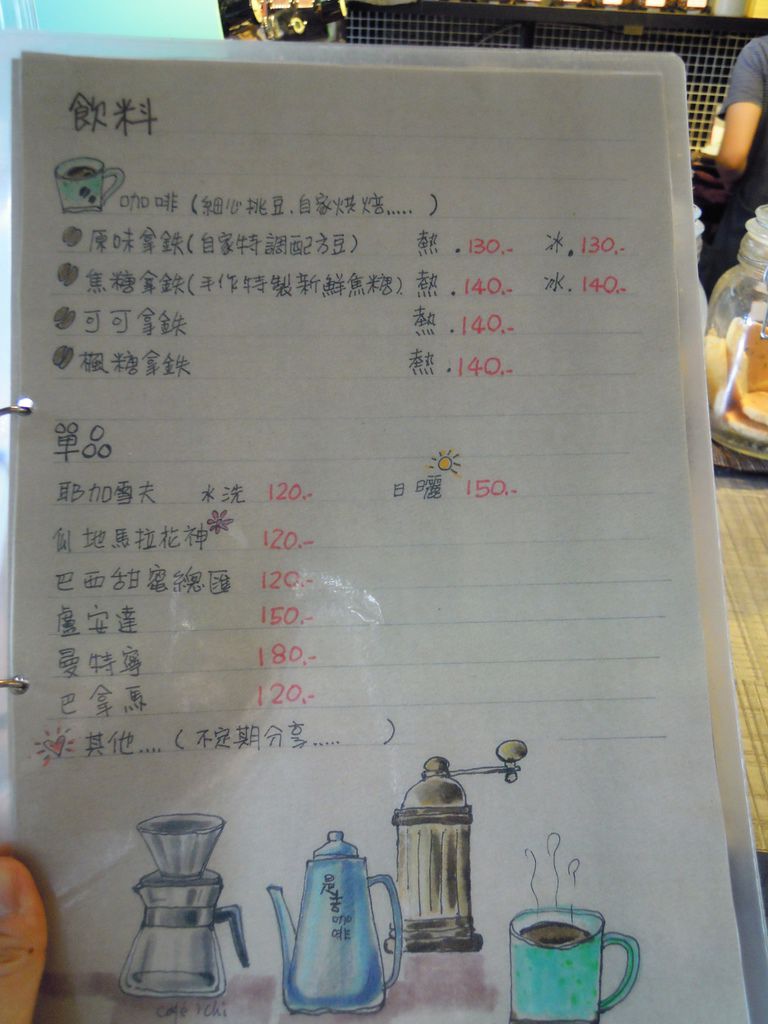 飲料
咖啡（細心挑豆.自家烘焙.....）
原味拿鉄(自家特調配方豆) 熱.130.- 冰.130.-
焦糖拿鉄(手作特製新鮮焦糖) 熱.140.- 冰.140.-
可可拿鉄 熱.140.-
楓糖拿鉄 熱.140.-
單品
耶加雪夫 水洗 120.- 日曬 150.-
瓜地馬拉花神 120.-
巴西甜蜜總匯 120.-
盧安達 150.-
曼特寧 180.-
巴拿馬 120.-
其他....（不定期分享.....）
咖啡
café ichi